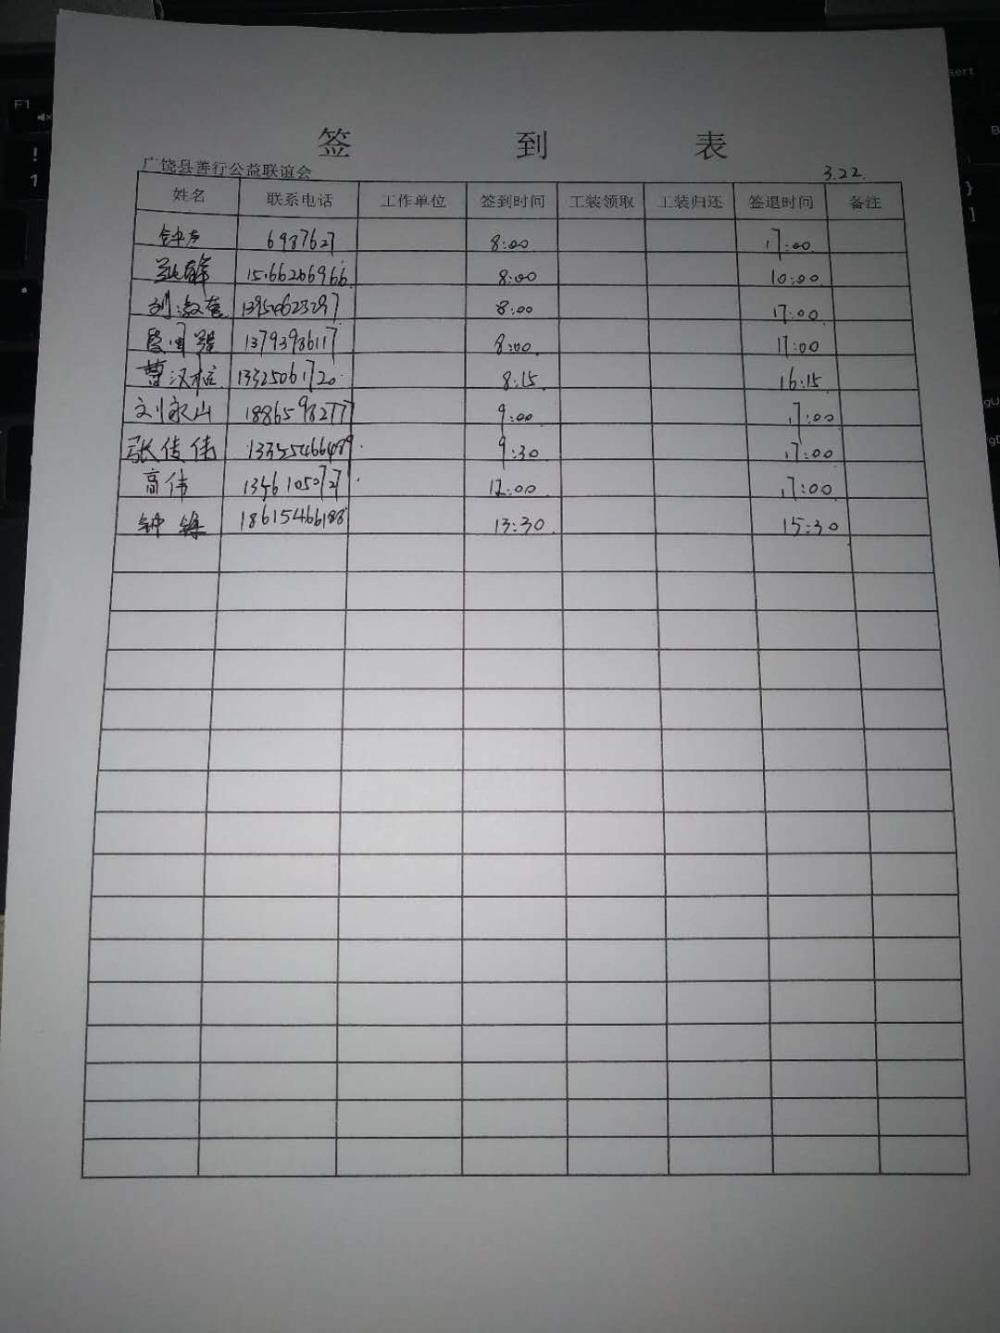 签 到 表
广饶县善行公益联谊会 3.22.
姓名 联系电话 工作单位 签到时间 工装领取 工装归还 签退时间 备注
6987627 8:00 17:00
15666206966 8:00 10:00
8:00 17:00
13793986117 8:00 17:00
曹汉柱 13325061720 8:15 16:15
刘永山 18865982777 9:00 17:00
张俊伟 9:30 17:00
高伟 13461050727 12:00 17:00
18615466188 13:30 15:30